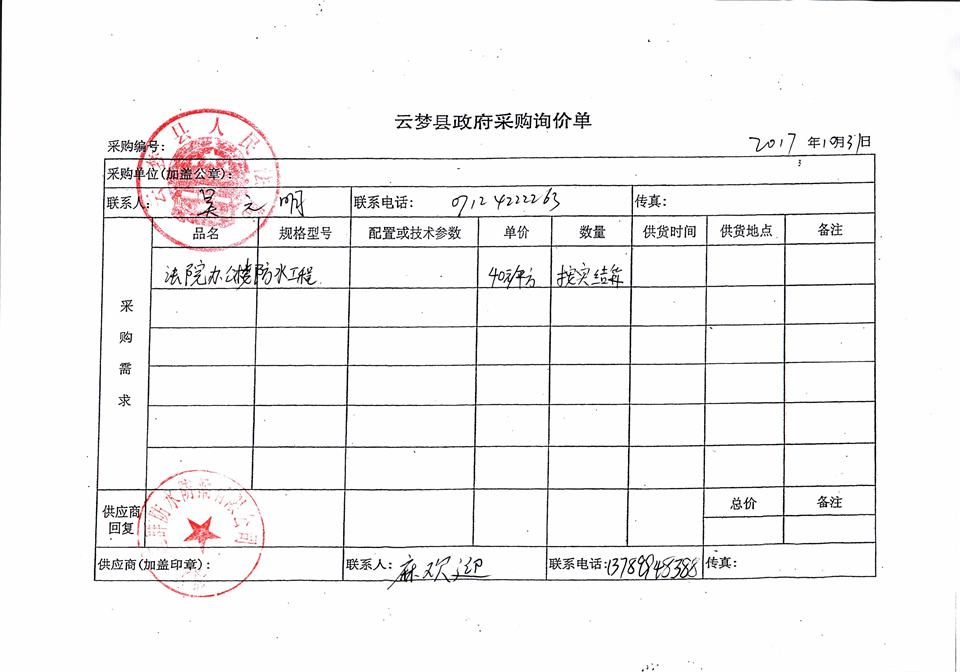 云梦县政府采购询价单
采购编号: 2017年10月31日
采购单位(加盖公章):
联系人: 吴元明 联系电话: 0712 4222263 传真:
品名 规格型号 配置或技术参数 单价 数量 供货时间 供货地点 备注
法院办公楼防水工程 40元/平方 按实结算
采购需求
供应商回复 总价 备注
供应商(加盖印章): 联系人: 麻欢迎 联系电话: 传真: